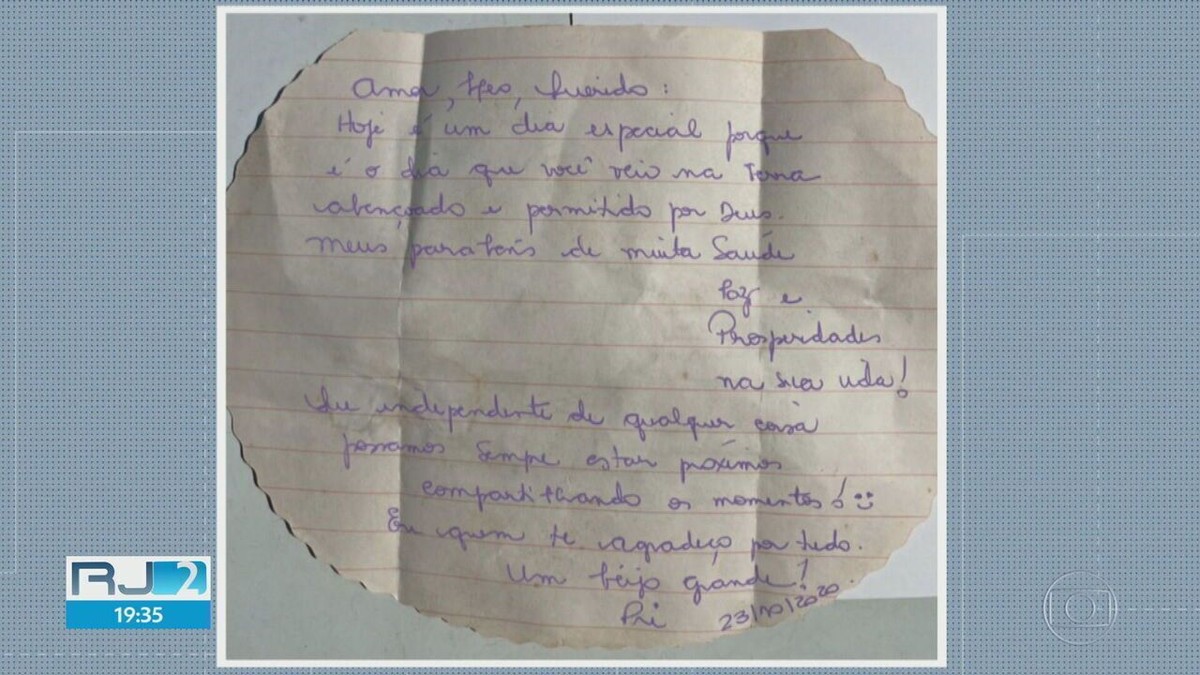 Amor, Leo, Querido:
Hoje é um dia especial porque
é o dia que você veio na Terra
abençoado e permitido por Deus.
Meus parabéns de muita Saúde
Paz e
Prosperidades
na sua vida!
Que independente de qualquer coisa
possamos sempre estar próximos
compartilhando os momentos! :)
Eu quem te agradeço por tudo.
Um beijo grande!
Pri 23/10/2020
RJ2
19:35